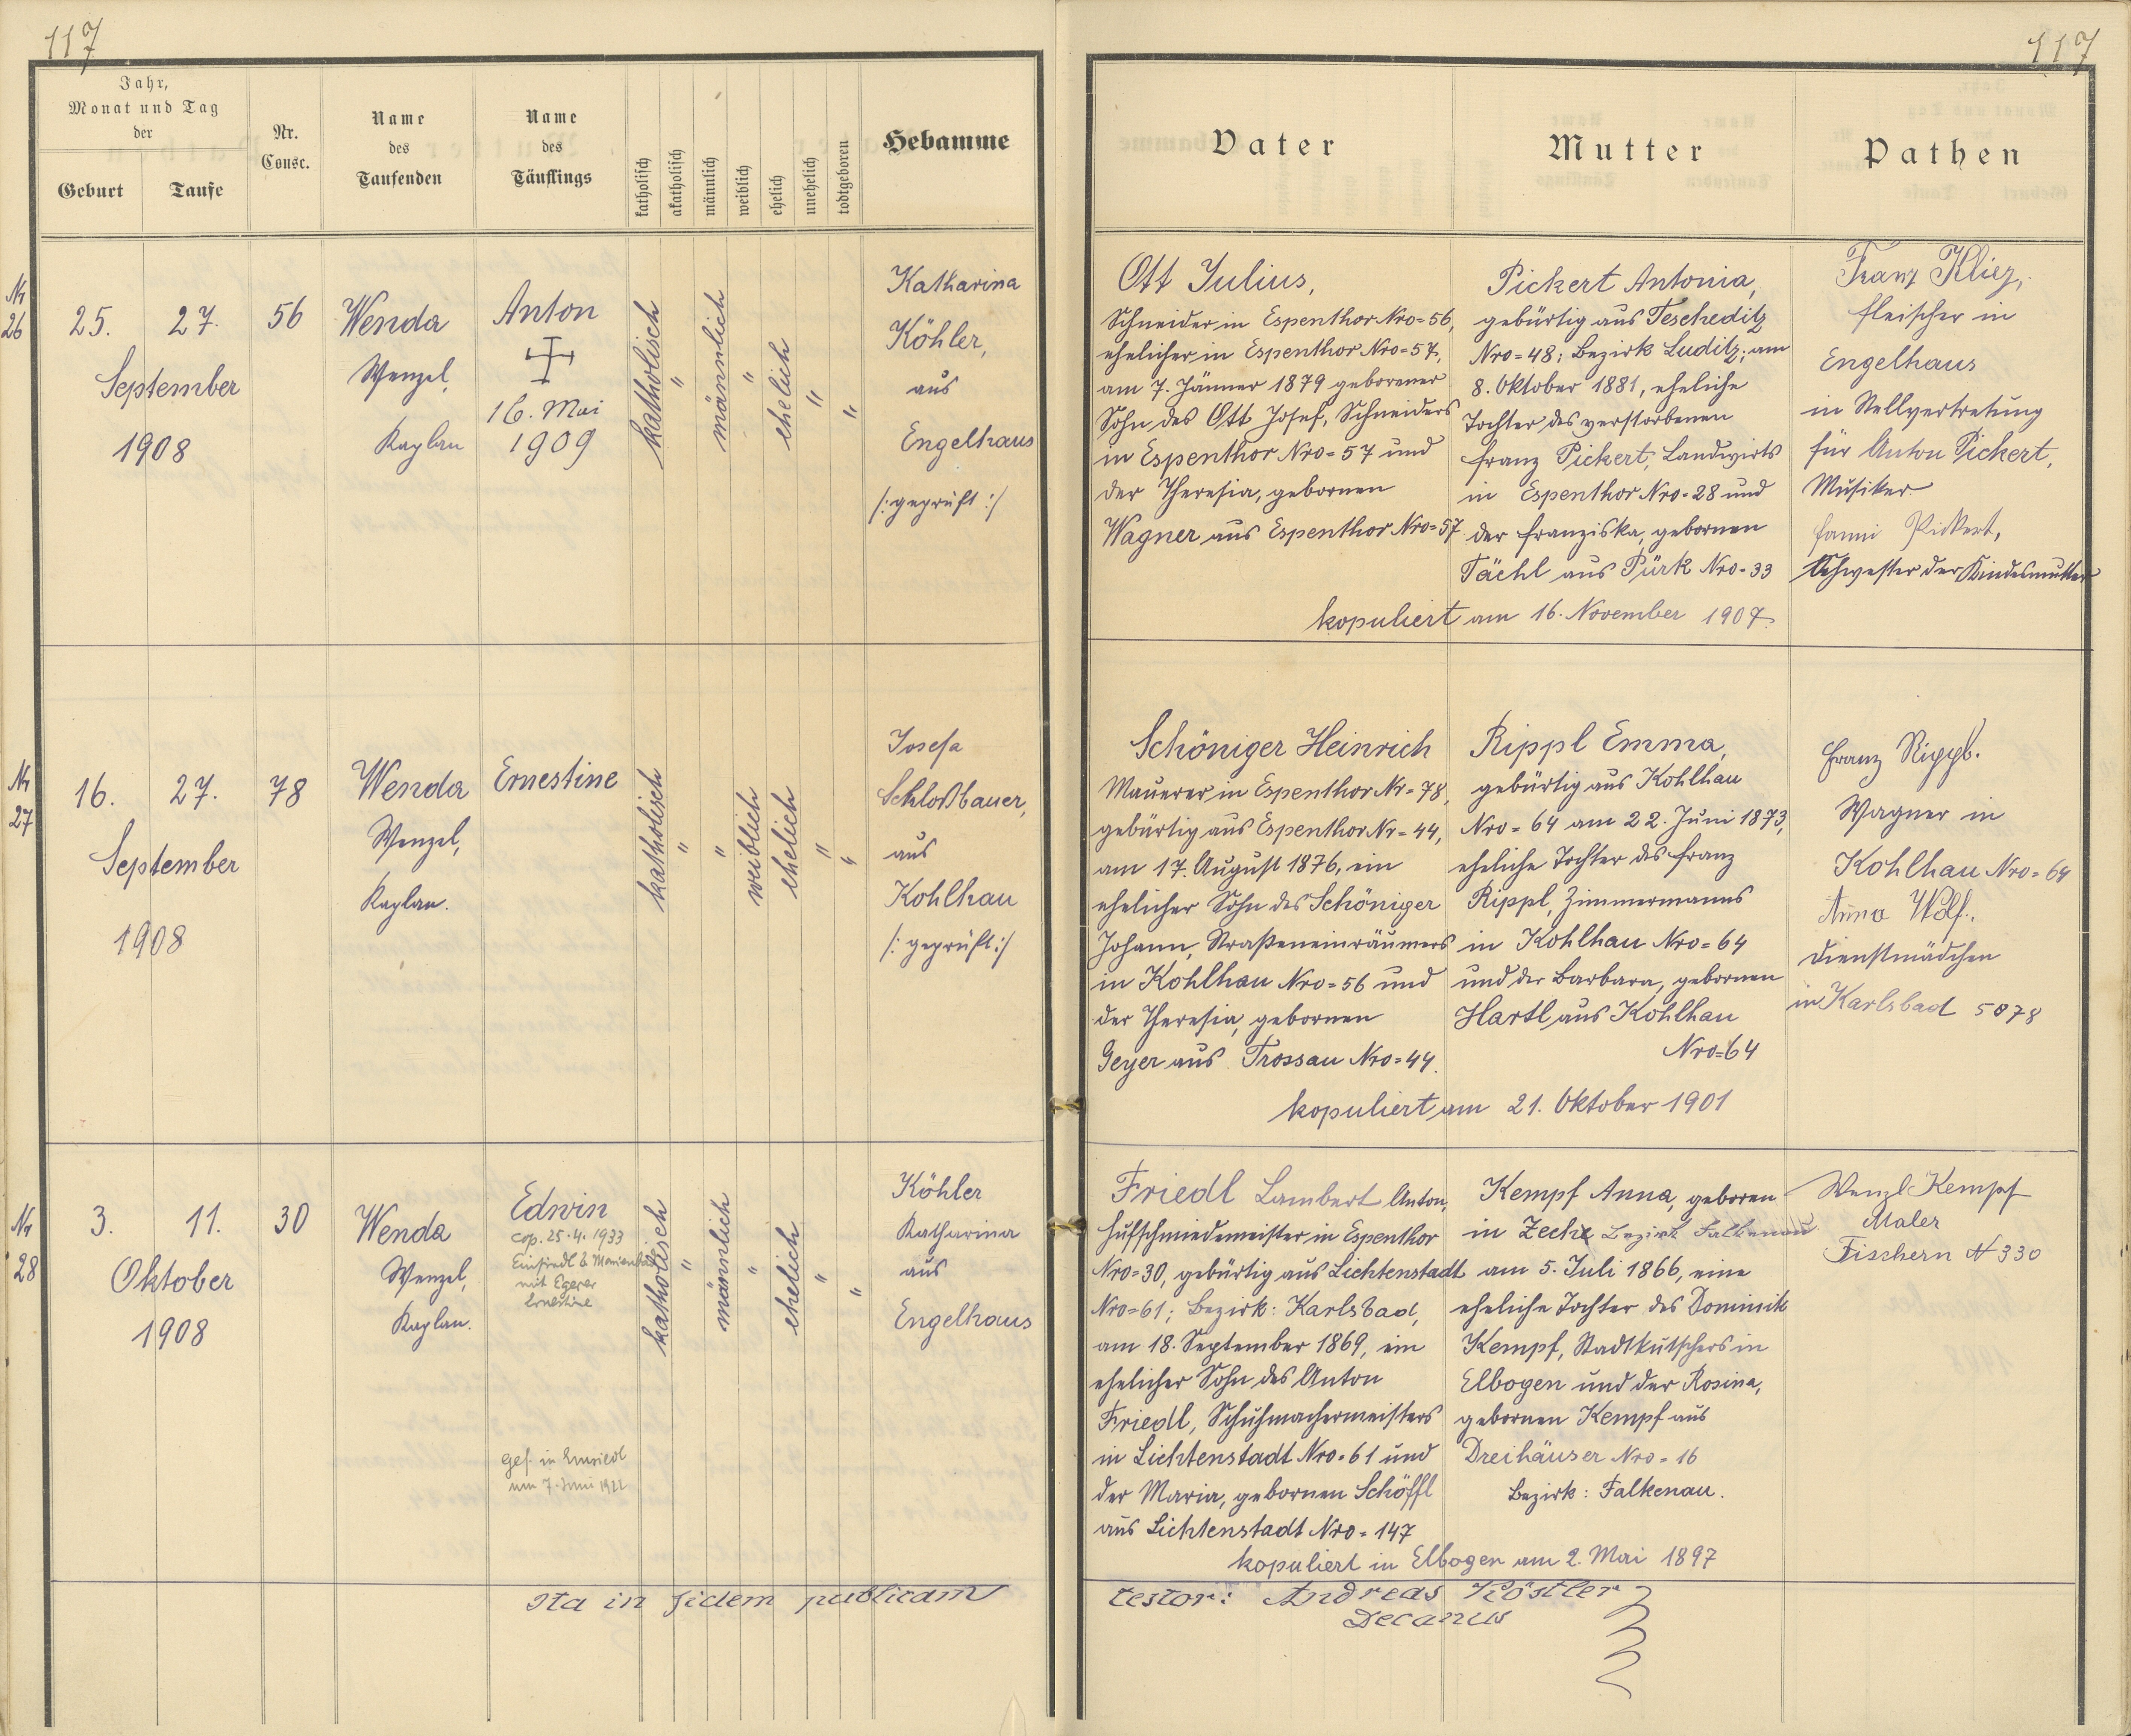 117
117
Jahr,
Monat und Tag
der
Geburt
Taufe
Nr.
Consc.
Name
des
Taufenden
Name
des
Täuflings
katholisch
akatholisch
männlich
weiblich
ehelich
unehelich
todtgeboren
Hebamme
Vater
Mutter
Pathen
Nr
26
25.
27.
September
1908
56
Wenda
Wenzel,
Kaplan
Anton
16. Mai
1909
katholisch
"
männlich
"
ehelich
"
"
Katharina
Köhler,
aus
Engelhaus
/: geprüft :/
Ott Julius,
Schneider in Espenthor Nro=56,
ehelicher in Espenthor Nro=57,
am 7. Jänner 1879 geborener
Sohn des Ott Josef, Schneiders
in Espenthor Nro=57 und
der Theresia, gebornen
Wagner aus Espenthor Nro=57
Pickert Antonia,
gebürtig aus Tescheditz
Nro=48; Bezirk Luditz; am
8. Oktober 1881, eheliche
Tochter des verstorbenen
Franz Pickert, Landwirts
in Espenthor Nro=28 und
der Franziska, gebornen
Tächl aus Pürk Nro=33
kopuliert am 16. November 1907.
Franz
Fleischer in
Engelhaus
in Stellvertretung
für Anton Pickert,
Musiker
Fanni Pickert,
Schwester der Kindesmutter
Nr
27
16.
27.
September
1908
78
Wenda
Wenzel,
Kaplan.
Ernestine
katholisch
"
"
weiblich
ehelich
"
"
Josefa
Schloßbauer,
aus
Kohlhau
/: geprüft :/
Schöniger Heinrich
Mauerer in Espenthor Nr=78,
gebürtig aus Espenthor Nr=44,
am 17. August 1876, ein
ehelicher Sohn des Schöniger
Johann, Straßeneinräumers
in Kohlhau Nro=56 und
der Theresia, gebornen
Geyer aus Trossau Nro=44.
Rippl Emma,
gebürtig aus Kohlhau
Nro=64 am 22. Juni 1873,
eheliche Tochter des Franz
Rippl, Zimmermanns
in Kohlhau Nro=64
und der Barbara, gebornen
Hartl aus Kohlhau
Nro=64
kopuliert am 21. Oktober 1901
Franz Rippl.
Wagner in
Kohlhau Nro=64
Anna Wolf.,
Dienstmädchen
in Karlsbad 5078
Nr
28
3.
11.
Oktober
1908
30
Wenda
Wenzel,
Kaplan.
Edwin
cop. 25.4.1933
Einsiedl b Marienbad
mit Egerer
Ernestine
gef. in Einsiedl
am 7. Juni 1922
katholisch
"
männlich
"
ehelich
"
"
Köhler
Katharina
aus
Engelhaus
Friedl Lambert Anton,
Hufschmiedemeister in Espenthor
Nro=30, gebürtig aus Lichtenstadt
Nro=61; Bezirk: Karlsbad,
am 18. September 1869, ein
ehelicher Sohn des Anton
Friedl, Schuhmachermeisters
in Lichtenstadt Nro=61 und
der Maria, gebornen Schöffl
aus Lichtenstadt Nro=147
Kempf Anna, geboren
in Zeche Bezirk Falkenau
am 5. Juli 1866, eine
eheliche Tochter des Dominik
Kempf, Stadtkutschers in
Elbogen und der Rosina,
gebornen Kempf aus
Dreihäuser Nro=16
Bezirk: Falkenau.
kopuliert in Elbogen am 2. Mai 1897
Wenzl Kempf
Maler
Fischern N 330
Ita in fidem publicam
testor: Andreas Köstler
Decanus